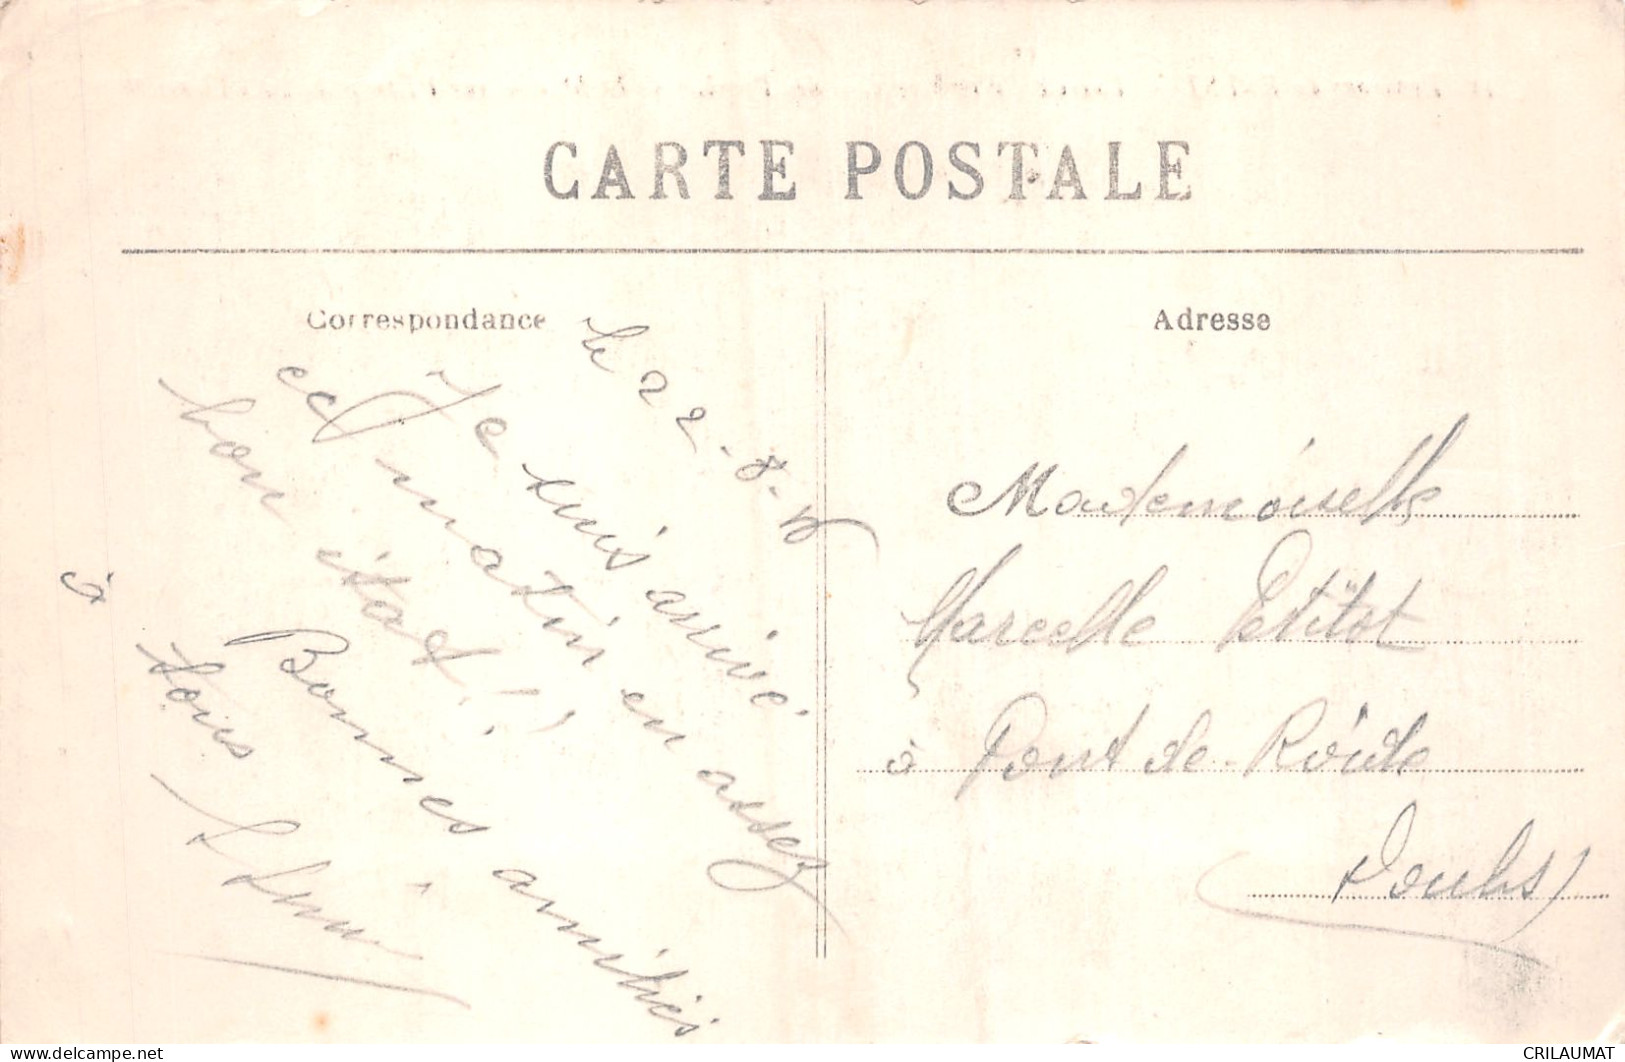 CARTE POSTALE
Correspondance
Adresse
le 22-8-15
Je suis arrivé
ce matin en assez
bon état!!
Bonnes amitiés
à tous
Mademoiselle
Marcelle Petitot
à Pont-de-Roide
Doubs)
CRILAUMAT